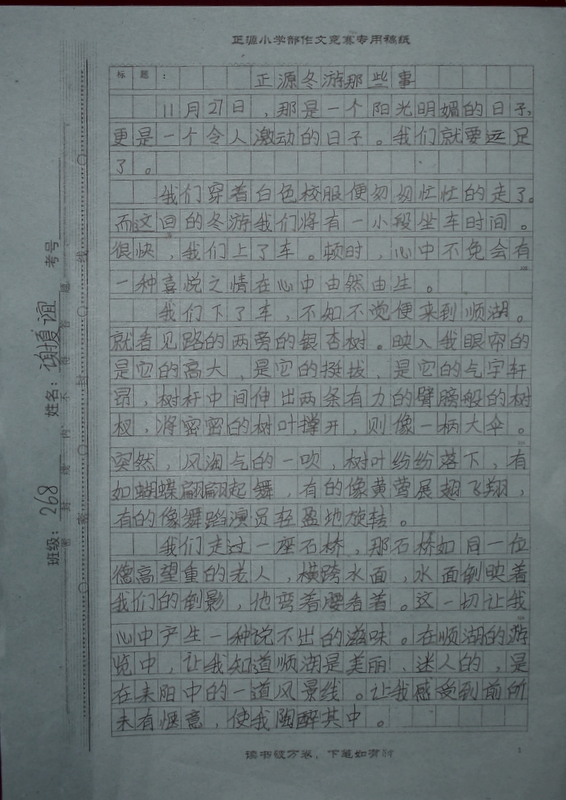 正源小学部作文竞赛专用稿纸
标题：
正源冬游那些事
11月27日，那是一个阳光明媚的日子，
更是一个令人激动的日子。我们就要远足
了。
我们穿着白色校服便匆匆忙忙的走了。
而这回的冬游我们将有一小段坐车时间。
很快，我们上了车。顿时，心中不免会有
一种喜悦之情在心中由然由生。
我们下了车，不知不觉便来到顺湖。
就看见路的两旁的银杏树。映入我眼帘的
是它的高大，是它的挺拔，是它的气宇轩
昂，树杆中间伸出两条有力的臂膀般的树
杈，将密密的树叶撑开，则像一柄大伞。
突然，风淘气的一吹，树叶纷纷落下，有
如蝴蝶翩翩起舞，有的像黄莺展翅飞翔，
有的像舞蹈演员轻盈地旋转。
我们走过一座石桥，那石桥如同一位
德高望重的老人，横跨水面，水面倒映着
我们的倒影，他弯着腰看着。这一切让我
心中产生一种说不出的滋味。在顺湖的游
览中，让我知道顺湖是美丽、迷人的，是
在耒阳中的一道风景线。让我感受到前所
未有惬意，使我陶醉其中。
读书破万卷，下笔如有神
1
班级：268
姓名：谢
考号